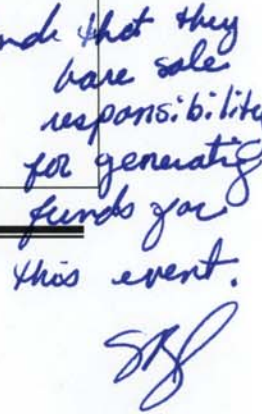 and that they
have sole
responsibility
for generating
funds for
this event.